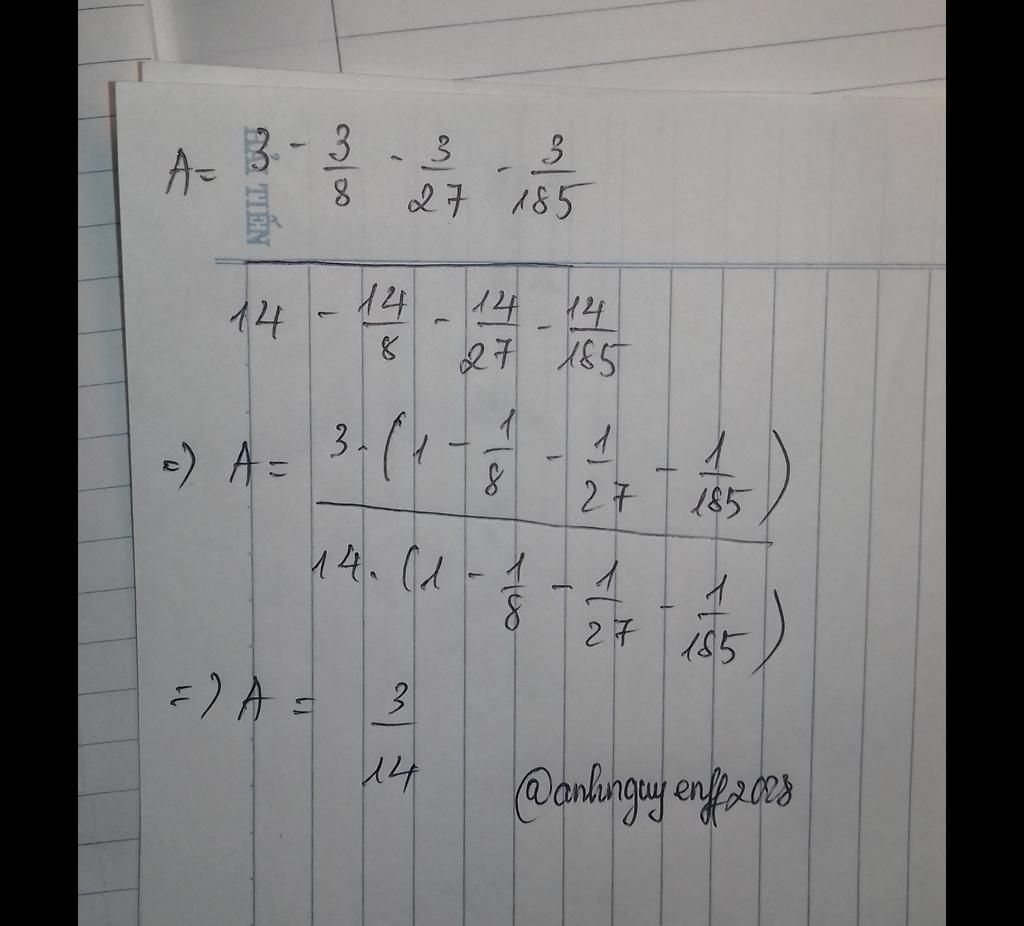 A = 3 - 3/8 - 3/27 - 3/185
14 - 14/8 - 14/27 - 14/185
=) A = 3. (1 - 1/8 - 1/27 - 1/185)
14. (1 - 1/8 - 1/27 - 1/185)
=) A = 3/14
@anhnguyenff2028
HẢI TIẾN